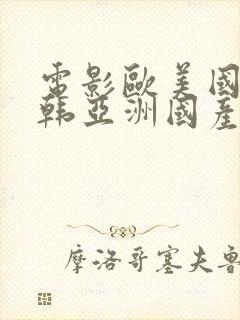 電影歐美國
韩亞洲國產
摩洛哥塞夫魯